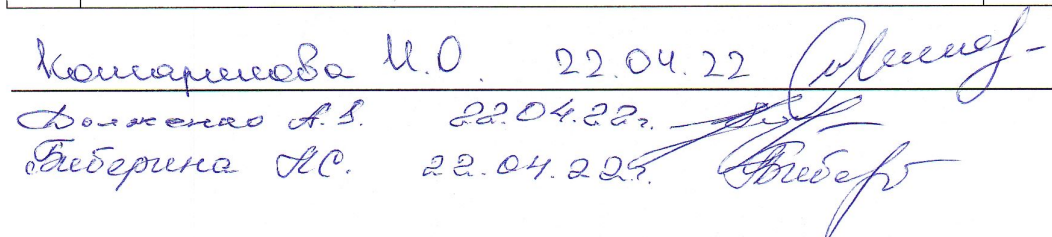 Комарикова И.О. 22.04.22
Долженко А.В. 22.04.22г.
Биберина Н.С. 22.04.22г. Бибер